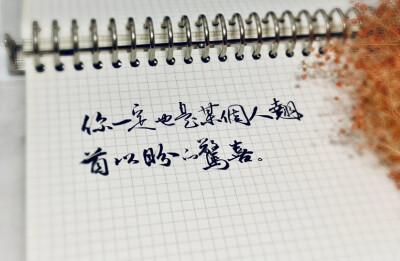 你一定也是某個人翹
首以盼的驚喜。